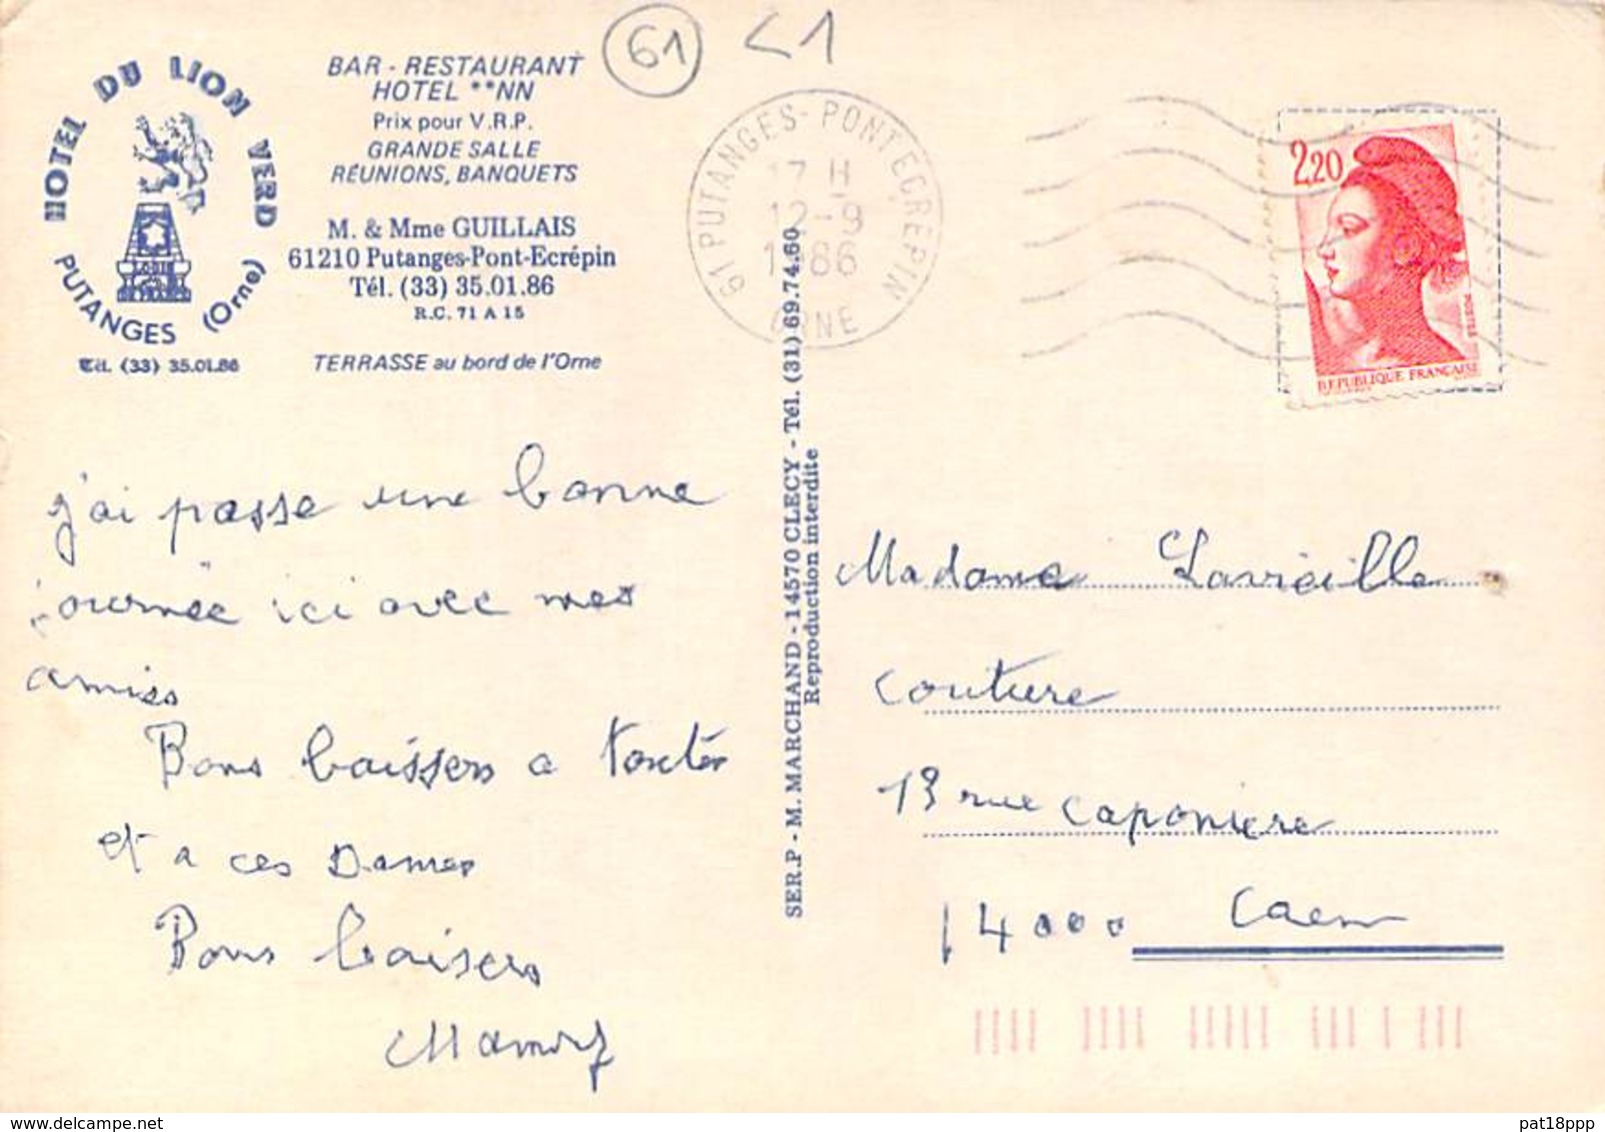 61 <1
HOTEL DU LION VERD
PUTANGES (Orne)
Tél. (33) 35.01.86
BAR - RESTAURANT
HOTEL **NN
Prix pour V.R.P.
GRANDE SALLE
RÉUNIONS, BANQUETS
M. & Mme GUILLAIS
61210 Putanges-Pont-Ecrépin
Tél. (33) 35.01.86
R.C. 71 A 15
TERRASSE au bord de l'Orne
61 PUTANGES-PONT ECREPIN
17 H
12-9
1986
ORNE
2,20
POSTES
REPUBLIQUE FRANÇAISE
j'ai passe une bonne
journée ici avec mes
amies
Bons baissers a toutes
et a ces Dames
Bons baisers
SER.P - M. MARCHAND - 14570 CLECY - Tél. (31) 69.74.60
Reproduction interdite
Madame Lavieille
couture
13 rue caponiere
14000 Caen
pat18ppp